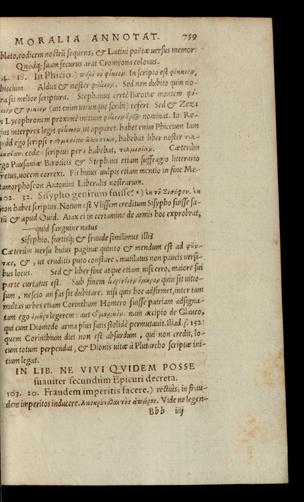 MORALIA ANNOTAT. 759
blato, eodiem nostrũ sequens, & Latini poëtæ versus memor:
Quódq; suam secutus arat Cromyona colonus.
4. 18. In Phicio.) In scripto est
biccium Aldus & noster Sed non dubito quin no-
ra sit melior scriptura. Stephanus certè Bæotiæ montem
(aut enim utrunque scribi) refert. Sed & Zeze
in Lycophronem proximè initium nominat. Io. Re-
jus interpres legit ut apparet. habet enim Phiceum Iam
quòd ego scripsi habebat liber noster
code: scriptus per habebat, Cæterùm
ego Pausaniæ Bœoticis & Stephani etiam suffragio litterario
fretus, vocem correxi. Fit huius vulpis etiam mentio in fine Me-
tamorphoseon Antonini Liberalis nostrarum.
102. 32. Sisypho genitum fuisse.*) in
non habet scriptus. Notum est Vlissem creditum Sisypho fuisse sa-
tũ & apud Ouid. Aiax ei in certamine de armis hoc exprobrat,
—quid sanguine natus
Sisyphio, furtisq; & fraude simillimus illi?
Cæterùm versu huius paginæ quinto & mendum est ad
&, ut eruditis puto constare, mutilatus non paucis versi-
bus locus. Sed & liber sinè atque etiam, nisi erro, maiore sui
parte curtatus est. Sub finem quin sit vitio-
sum, nescio an fas sit dubitare. nisi quis hoc adfirmet, inter tam
multas urbes etiam Corinthum Homero fuisse patriam adsigna-
tam ego legerem: aut nam accipio de Glauco,
qui cum Diomede arma plus satis stolidè permutauit. Iliad. 152.
quem Corinthium dici non est absurdum, qui non credit, lo-
cum totum perpendat, & Dionis vitæ à Plutarcho scriptæ ini-
tium legat.
IN LIB. NE VIVI QVIDEM POSSE
suauiter secundùm Epicuri decreta.
103. 20. Fraudem imperitis facere.) rectiùs, in frau-
dem imperitos inducere. Vide ne legen-
Bbb iij